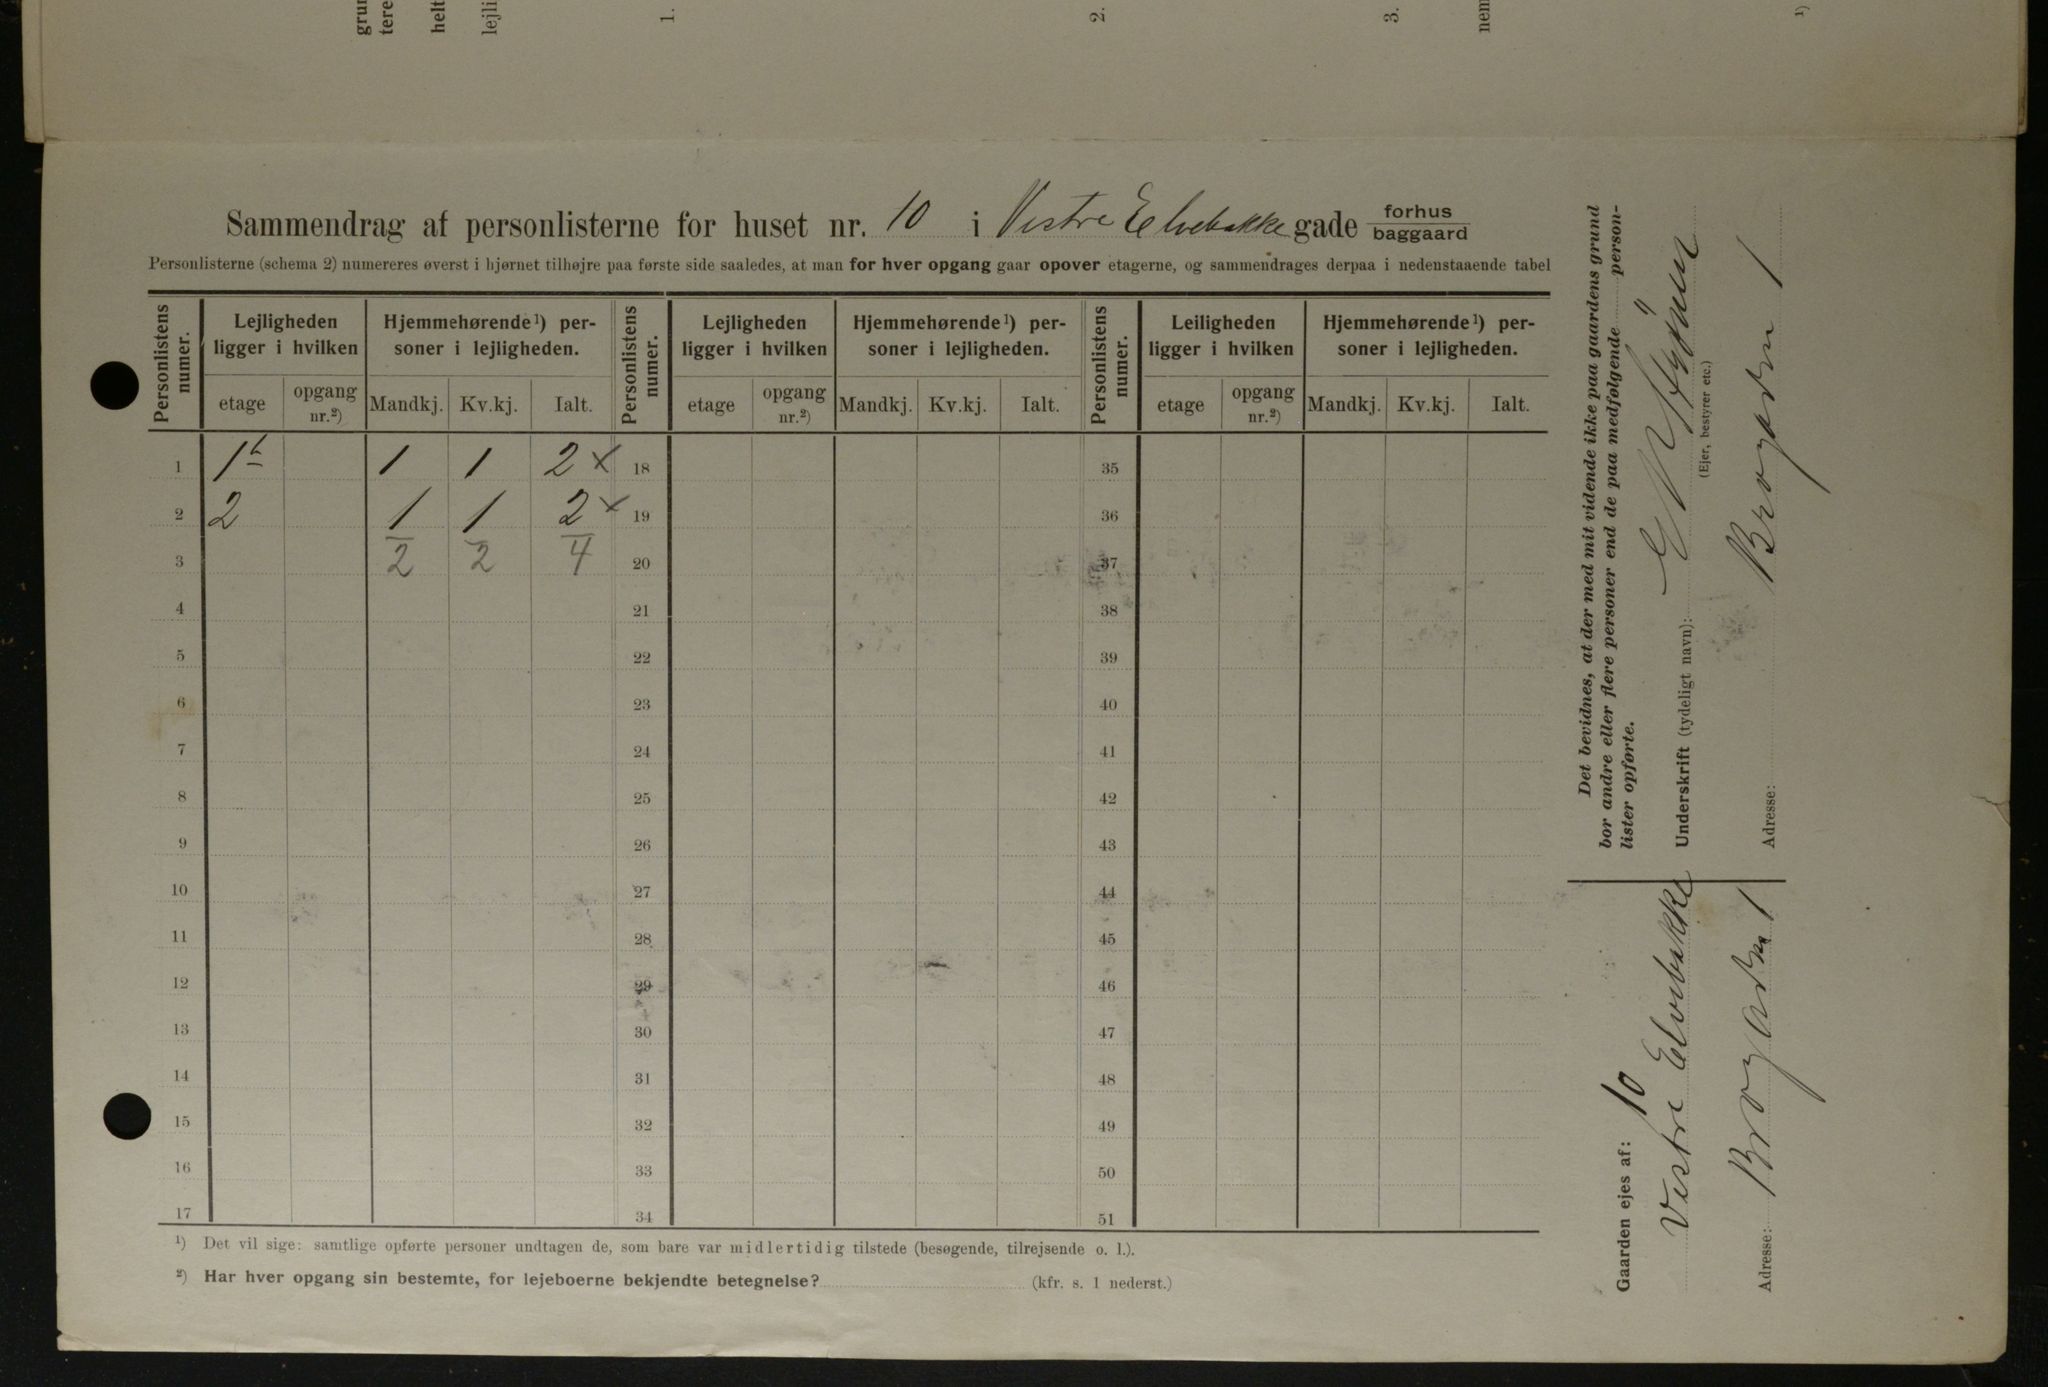 Sammendrag af personlisterne for huset nr. 10 i Vestre Elvebakke gade forhus baggaard
Personlisterne (schema 2) numereres øverst i hjørnet tilhøjre paa første side saaledes, at man for hver opgang gaar opover etagerne, og sammendrages derpaa i nedenstaaende tabel
Personlistens numer. Lejligheden ligger i hvilken Hjemmehørende 1) personer i lejligheden. Personlistens numer. Lejligheden ligger i hvilken Hjemmehørende 1) personer i lejligheden. Personlistens numer. Leiligheden ligger i hvilken Hjemmehørende 1) personer i lejligheden.
etage opgang nr.2) Mandkj. Kv.kj. Ialt. etage opgang nr.2) Mandkj. Kv.kj. Ialt. etage opgang nr.2) Mandkj. Kv.kj. Ialt.
1 1 1 1 2 x 18 35
2 2 1 1 2 x 19 36
3 2 2 4 20 37
4 21 38
5 22 39
6 23 40
7 24 41
8 25 42
9 26 43
10 27 44
11 28 45
12 29 46
13 30 47
14 31 48
15 32 49
16 33 50
17 34 51
1) Det vil sige: samtlige opførte personer undtagen de, som bare var midlertidig tilstede (besøgende, tilrejsende o. l.).
2) Har hver opgang sin bestemte, for lejeboerne bekjendte betegnelse? (kfr. s. 1 nederst.)
Det bevidnes, at der med mit vidende ikke paa gaardens grund
bor andre eller flere personer end de paa medfølgende person-
lister opførte.
Underskrift (tydeligt navn):
(Ejer, bestyrer etc.)
Adresse: 1
Gaarden ejes af: 10
Vestre Elvebakke
Adresse: 1
grun
tere
helt
lejli
1.
2.
3.
nem
1)